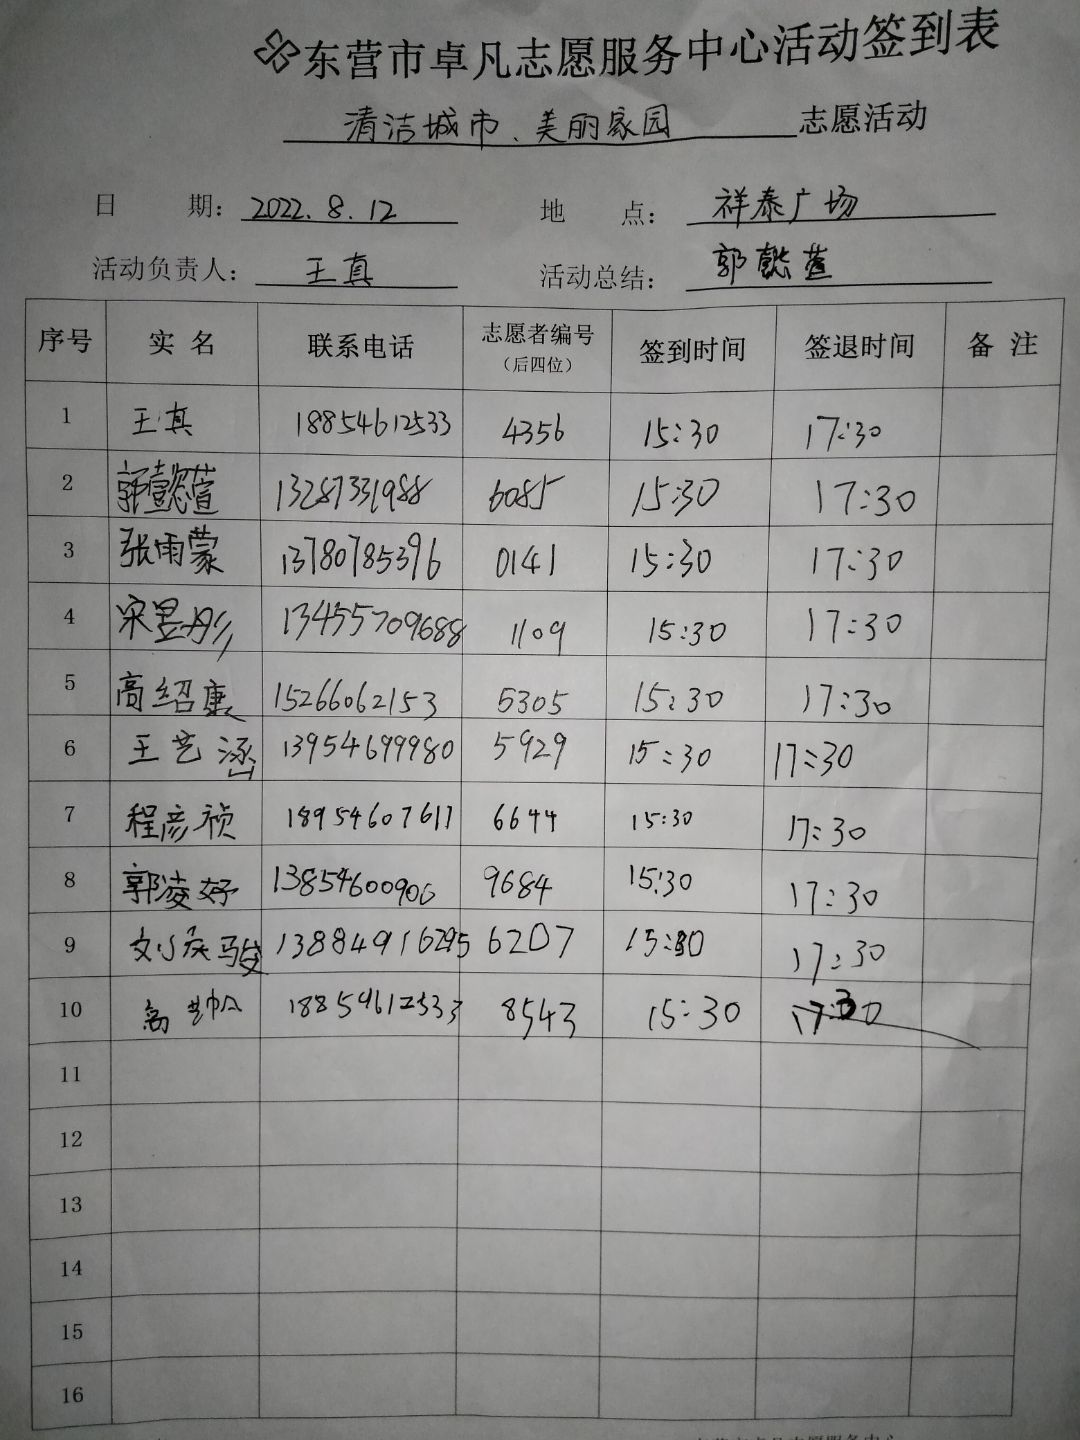 东营市卓凡志愿服务中心活动签到表
清洁城市、美丽家园 志愿活动
日 期: 2022.8.12 地 点: 祥泰广场
活动负责人: 王真 活动总结: 郭懿萱
序号 实名 联系电话 志愿者编号(后四位) 签到时间 签退时间 备注
1 王真 18854612533 4356 15:30 17:30
2 郭懿萱 13287331988 6085 15:30 17:30
3 张雨蒙 13780785396 0141 15:30 17:30
4 宋昱彤 13455709688 1109 15:30 17:30
5 高绍康 15266062153 5305 15:30 17:30
6 王艺涵 13954699980 5929 15:30 17:30
7 程彦祯 18954607611 6644 15:30 17:30
8 郭凌妤 13854600906 9684 15:30 17:30
9 刘庆骏 13884916295 6207 15:30 17:30
10 高 18854612533 8543 15:30 17:30
11
12
13
14
15
16